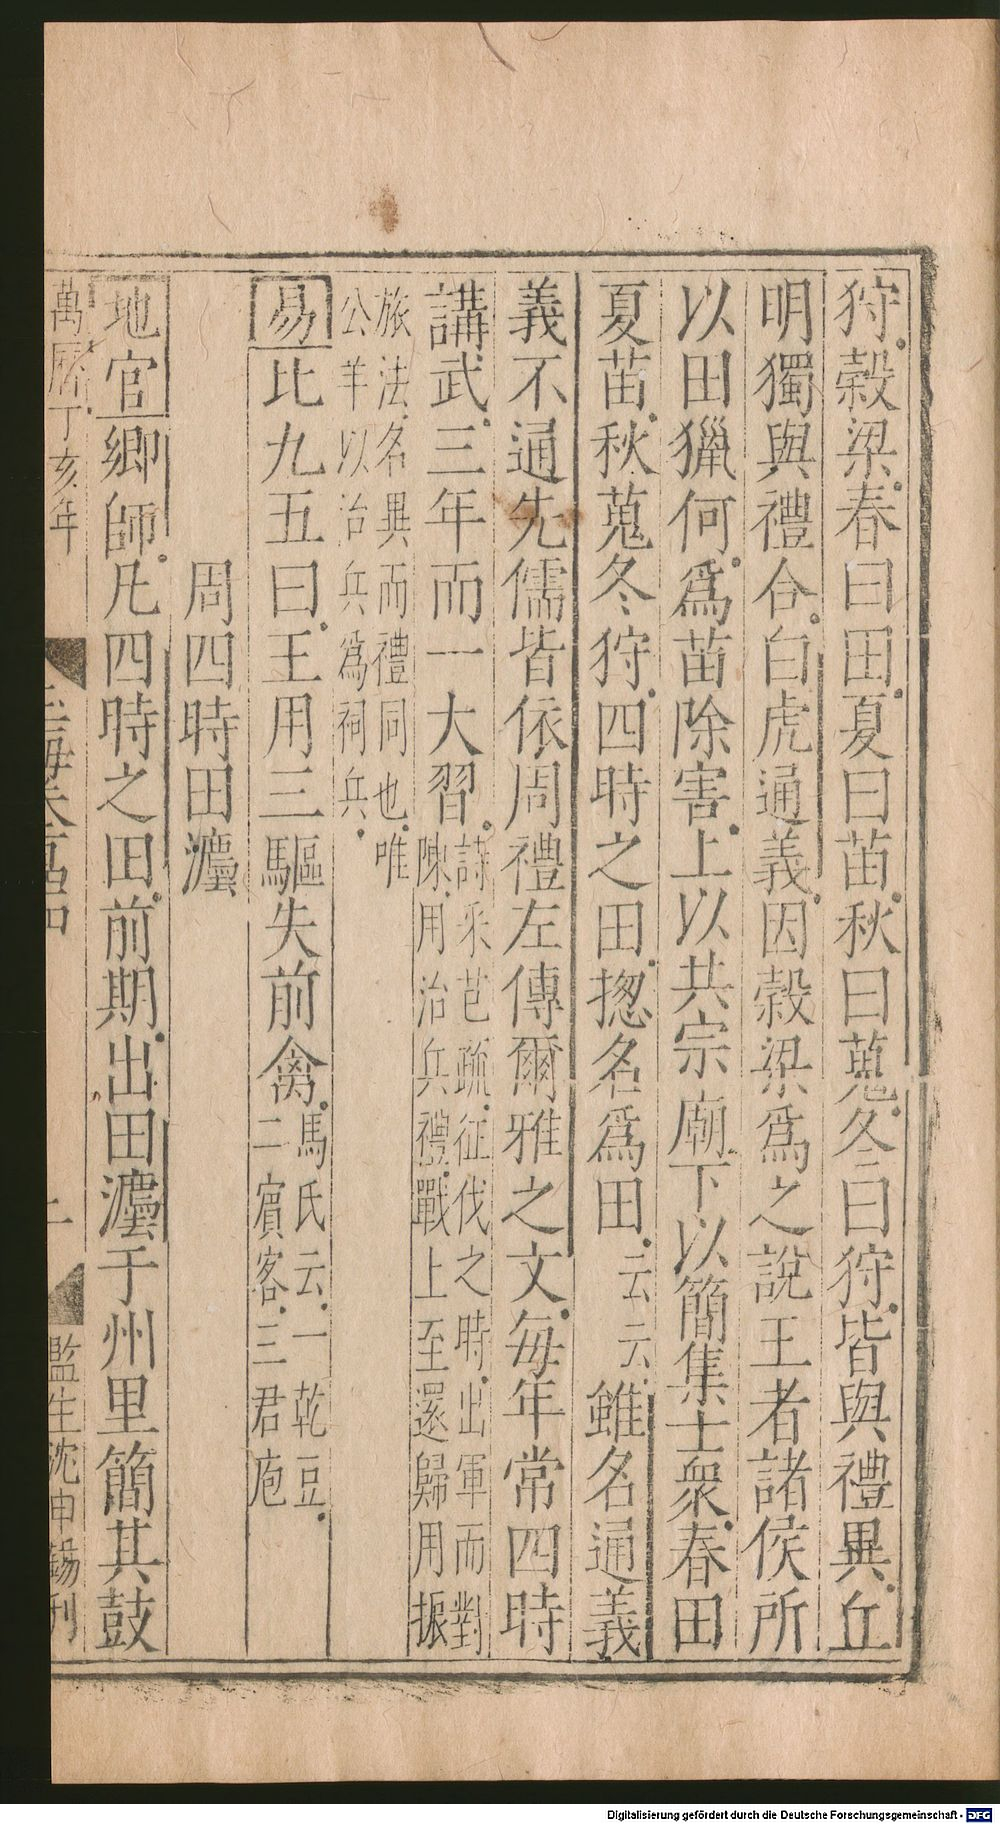 狩。榖梁。春曰田。夏曰苗。秋曰蒐。冬曰狩。皆與禮異。丘
明獨與禮合。白虎通義。因榖梁爲之説王者諸侯所
以田獵何。爲苗除害。上以共宗廟下以簡集士衆。春田
夏苗。秋蒐冬狩。四時之田。揔名爲田。云云。雖名通義
義不通先儒皆依周禮左傳爾雅之文。每年常四時
講武。三年而一大習。詩采芑疏。征伐之時。出軍而對
陳。用治兵禮。戰上至還歸用振
旅法。名異而禮同也。唯
公羊以治兵爲祠兵。
易比九五曰。王用三驅失前禽。馬氏云。一乾豆。
二賓客。三君庖
周四時田灋
地官鄉師。凡四時之田。前期。出田灋于州里簡其鼓
萬厤丁亥年
玉海卷百四
監生沈申錫刊
Digitalisierung gefördert durch die Deutsche Forschungsgemeinschaft - DFG